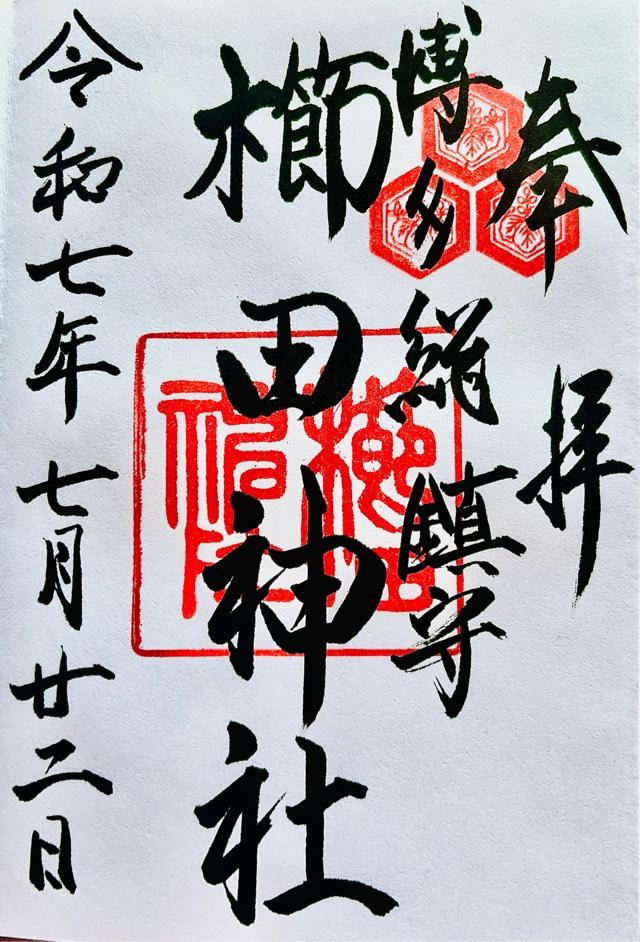 奉拝
博多総鎮守
櫛田神社
令和七年七月廿二日